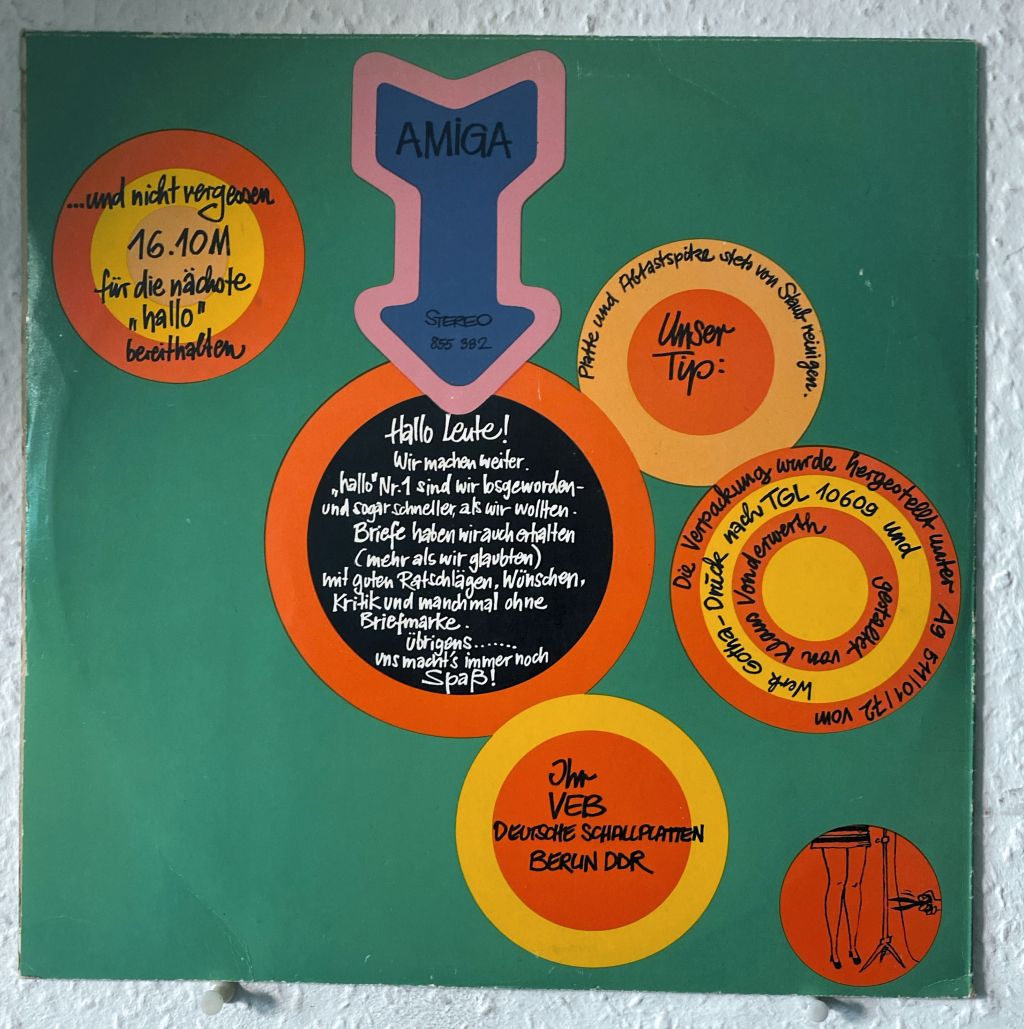 AMIGA
STEREO
855 382
...und nicht vergessen
16.10M
für die nächste
„hallo"
bereithalten
Platte und Abtastspitze stets von Staub reinigen.
Unser
Tip:
Hallo Leute!
Wir machen weiter.
„hallo" Nr.1 sind wir losgeworden-
und sogar schneller, als wir wollten.
Briefe haben wir auch erhalten
(mehr als wir glaubten)
mit guten Ratschlägen, Wünschen,
Kritik und manchmal ohne
Briefmarke.
übrigens.......
uns macht's immer noch
Spaß!
Die Verpackung wurde hergestellt unter Ag 511/01/72 vom
Werk Gotha-Druck nach TGL 10609 und
gestaltet von Klaus Vonderwerth
Ihr
VEB
DEUTSCHE SCHALLPLATTEN
BERLIN DDR